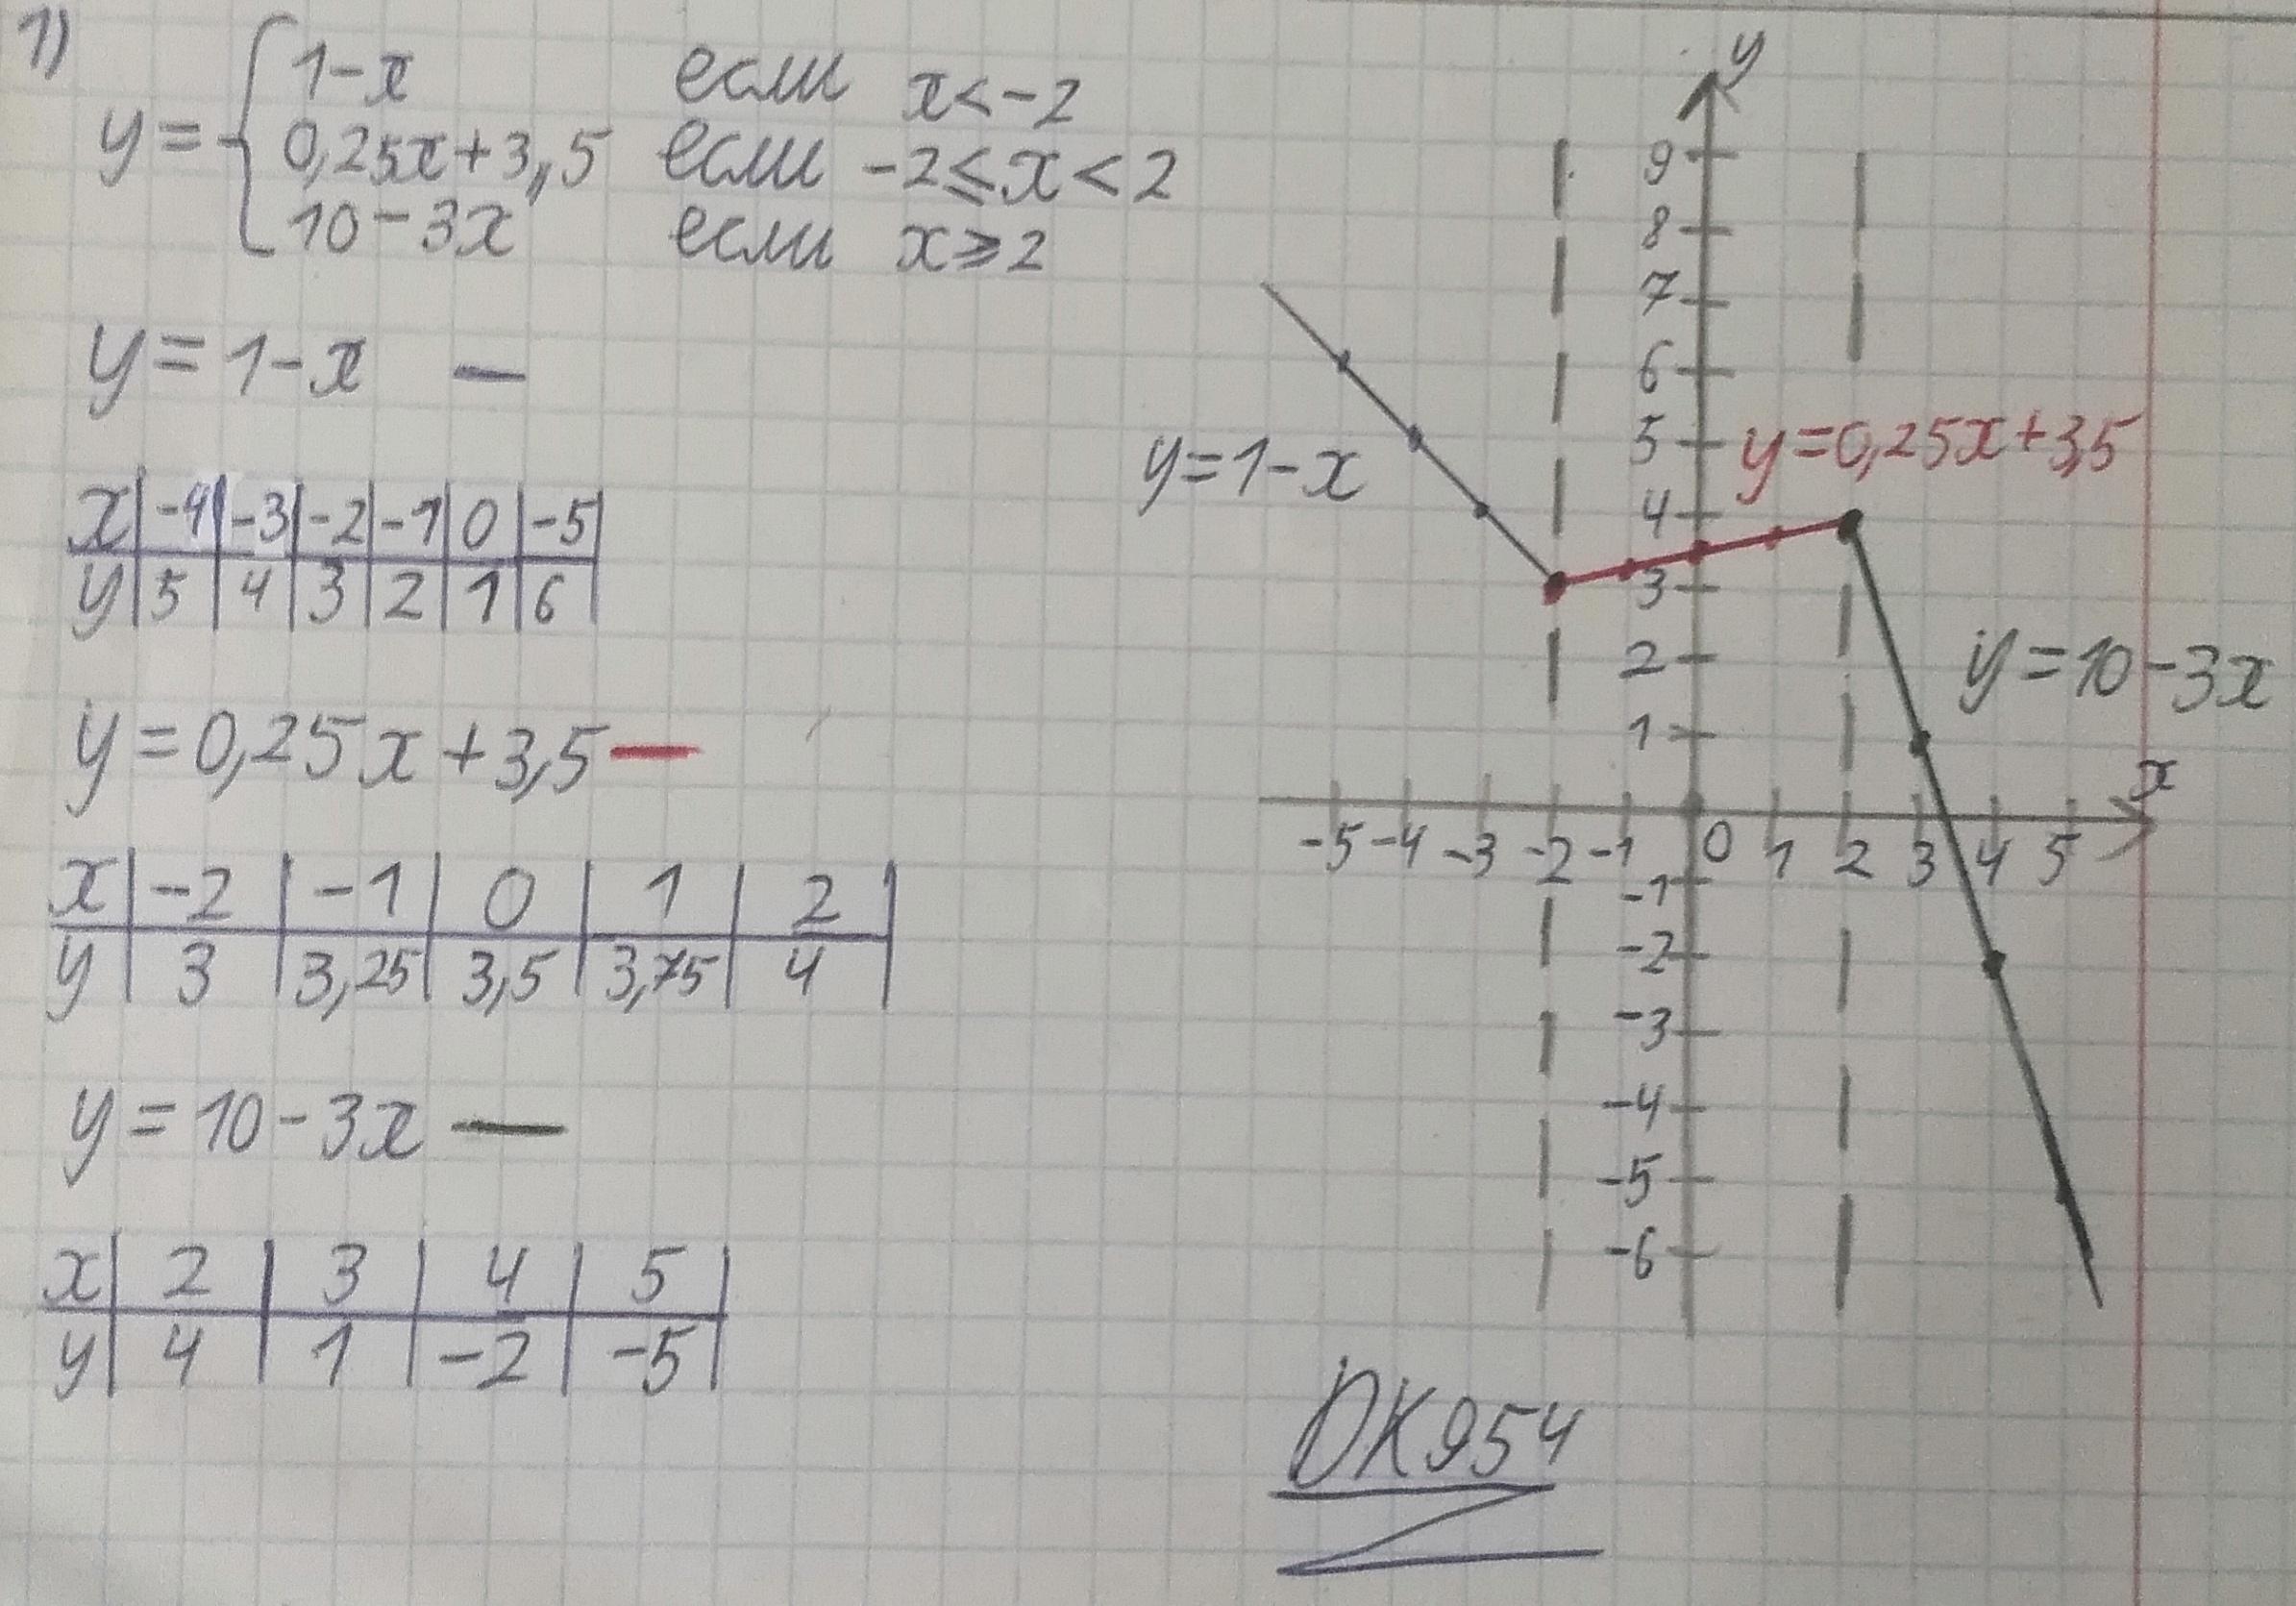 1)
y = { 1-x если x<-2
0,25x+3,5 если -2≤x<2
10-3x если x≥2
y=1-x —
x|-4|-3|-2|-1|0|-5|
y|5|4|3|2|1|6|
y=0,25x+3,5 —
x|-2|-1|0|1|2|
y|3|3,25|3,5|3,75|4|
y=10-3x —
x|2|3|4|5|
y|4|1|-2|-5|
y
9
8
7
6
5
4
3
2
1
y=1-x
y=0,25x+3,5
y=10-3x
x
-5 -4 -3 -2 -1 0 1 2 3 4 5
-1
-2
-3
-4
-5
-6
DK954